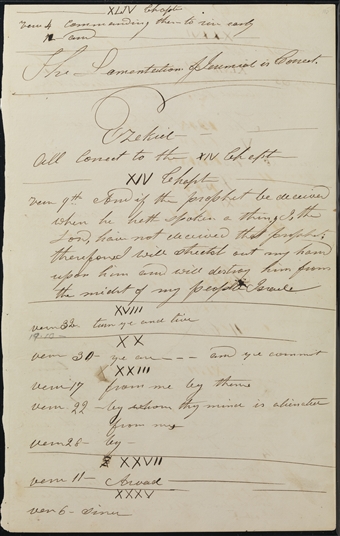 XLIV Chapt
vers 4 commanding them to rise early
12 and
The Lamentation of Jeremiah is Correct
Ezekiel
All Correct to the XIV Chapt
XIV Chapt
vers 9th And if the prophet be deceived
when he hath spoken a thing I the
Lord, have not deceived that prophet,
therefore I will stretch out my hand
upon him and will destroy him from
the midst of my people Israele
XVIII
vers 32 turn ye and live
XX
vers 30 - ye are - - - and ye commit
XXIII
vers 17 from me by them
vers 22 - by whom thy mind is alienated
from me
vers 28 - by -
XXVII
vers 11 - Arvad
XXXV
vers 6 - since